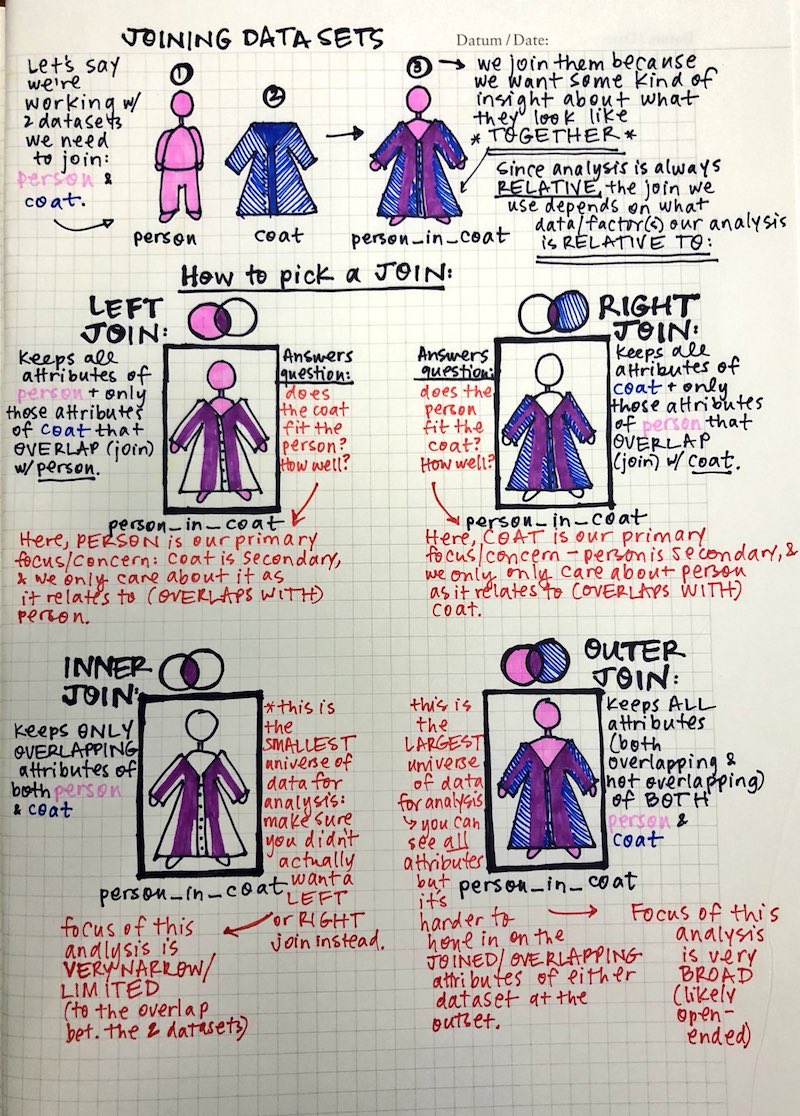 JOINING DATA SETS
Datum / Date:
Let's say
we're
working w/
2 datasets
we need
to join:
person &
coat.
①
person
②
coat
③
person_in_coat
we join them because
we want some kind of
insight about what
they look like
* TOGETHER *
Since analysis is always
RELATIVE, the join we
use depends on what
data/factor(s) our analysis
is RELATIVE TO:
How to pick a JOIN:
LEFT
JOIN:
Keeps all
attributes of
person + only
those attributes
of coat that
OVERLAP (join)
w/ person.
Answers
question:
does
the coat
fit the
person?
How well?
person_in_coat
Here, PERSON is our primary
focus/concern: coat is secondary,
& we only care about it as
it relates to (OVERLAPS WITH)
person.
RIGHT
JOIN:
Answers
question:
does the
person
fit the
coat?
How well?
Keeps all
attributes of
coat + only
those attributes
of person that
OVERLAP
(join) w/ coat.
person_in_coat
Here, COAT is our primary
focus/concern - person is secondary, &
we only only care about person
as it relates to (OVERLAPS WITH)
coat.
INNER
JOIN:
Keeps ONLY
OVERLAPPING
attributes of
both person
& coat
person_in_coat
*this is
the
SMALLEST
universe of
data for
analysis:
make sure
you didn't
actually
want a
LEFT
or RIGHT
join instead.
focus of this
analysis is
VERY NARROW/
LIMITED
(to the overlap
bet. the 2 datasets)
OUTER
JOIN:
this is
the
LARGEST
universe
of data
for analysis
↳ you can
see all
attributes
but
it's
harder to
hone in on the
JOINED/OVERLAPPING
attributes of either
dataset at the
outset.
Keeps ALL
attributes
(both
overlapping &
not overlapping)
of BOTH
person &
coat
person_in_coat
Focus of this
analysis
is very
BROAD
(likely
open-
ended)